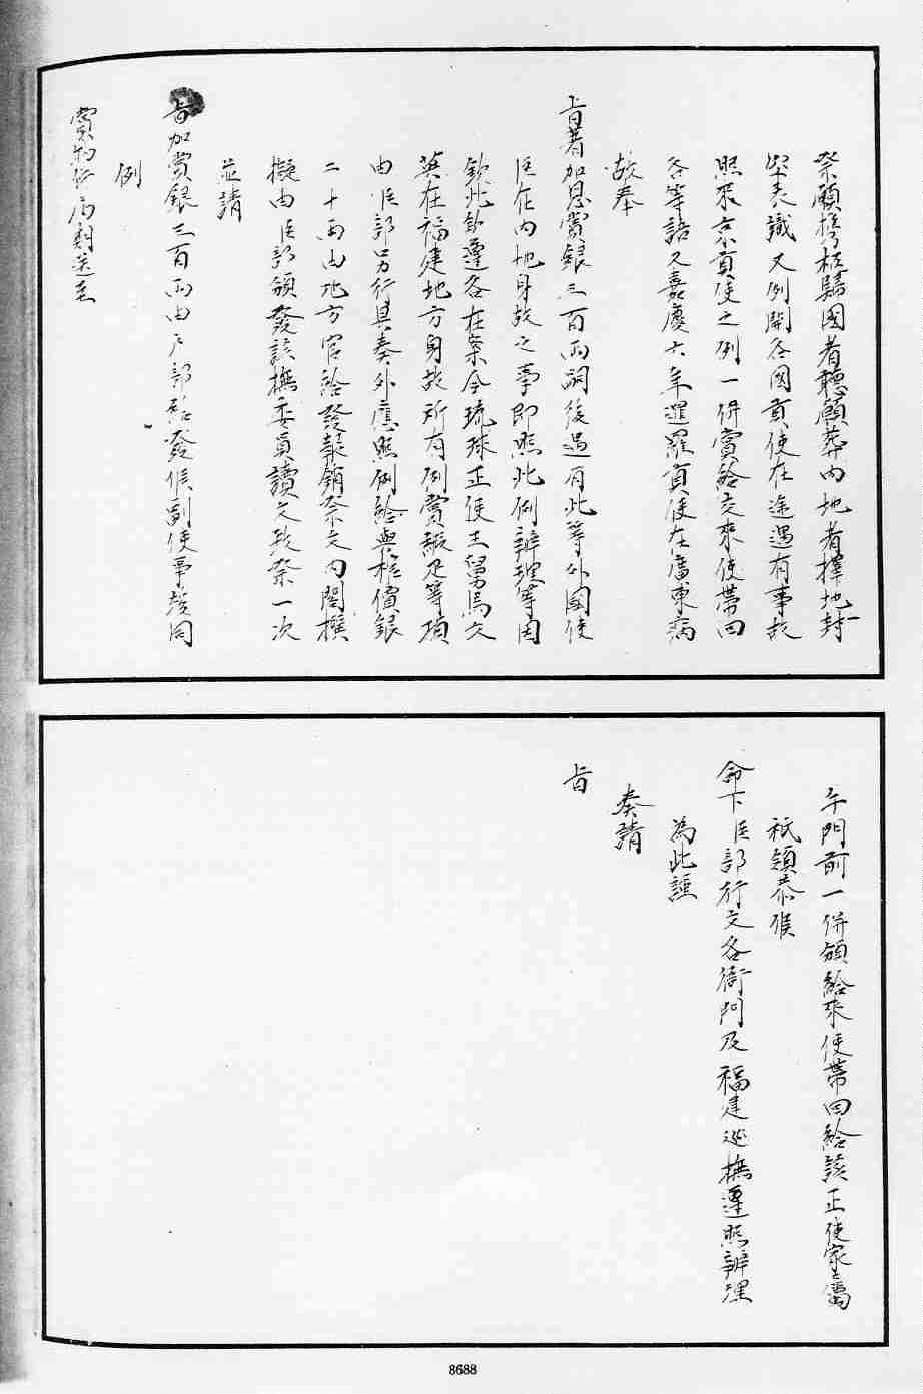 祭願携柩歸國者聽願葬內地者擇地封
堅表識又例開各國貢使在途遇有事故
照來京貢使之例一併賞給交來使帶回
各等語又嘉慶六年暹羅貢使在廣東病
故奉
上旨著加恩賞銀三百兩嗣後遇有此等外國使
臣在內地身故之事即照此例辦理等因
欽此欽遵各在案今琉球正使王舅馬文
英在福建地方身故所有例賞緞疋等項
由臣部另行具奏外應照例給與棺價銀
二十兩由地方官給發報銷祭文內閣撰
擬由臣部頒發該撫委員讀文致祭一次
並請
旨加賞銀三百兩由戶部給發俟副使事竣同
例
賞物件
午門前一併頒給來使帶回給該正使家屬
祇領恭候
命下臣部行文各衙門及福建巡撫遵照辦理
為此謹
奏請
旨
8688